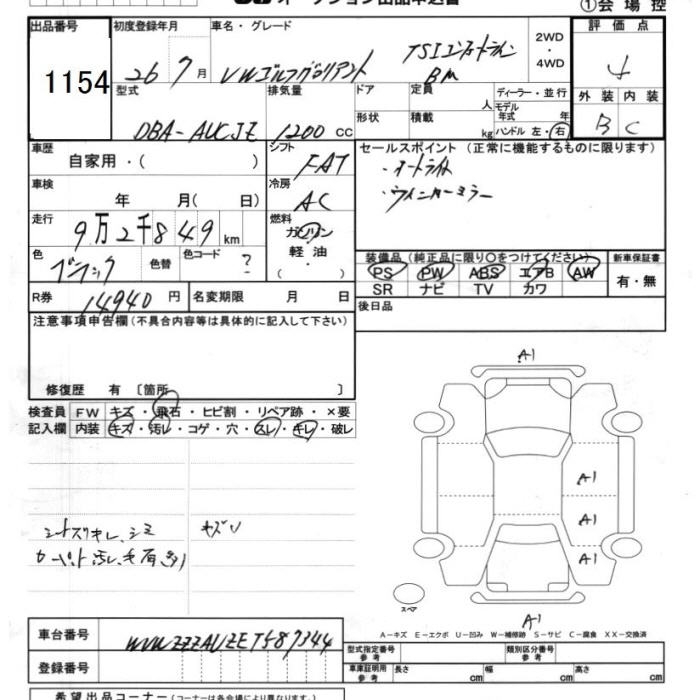 ①会場控
出品番号 初度登録年月 車名・グレード 2WD・4WD 評価点
1154 26 7月 VWゴルフヴァリアント TSIコンフォートライン BM 4
型式 排気量 ドア 定員 人 ディーラー・並行 外装 内装
DBA-AUCJZ 1200 CC 形状 積載 kg モデル年式 年 B C
ハンドル 左・右
車歴 自家用・( ) シフト FAT セールスポイント (正常に機能するものに限ります)
・オートライト
車検 年 月( 日) 冷房 AC ・ウインカーミラー
走行 9万2千849km 燃料 ガソリン
軽油
・( )
色 ブラック 色替 色コード ?
装備品(純正品に限り○をつけてください) 新車保証書
PS PW ABS エアB AW 有・無
SR ナビ TV カワ
R券 14940円 名変期限 月 日 後日品
注意事項申告欄(不具合内容等は具体的に記入して下さい)
修復歴 有 〔箇所 〕
検査員 FW キズ・飛石・ヒビ割・リペア跡・×要
記入欄 内装 キズ・汚レ・コゲ・穴・スレ・キレ・破レ
A1
A1
A1
A1
シートズリキレ、シミ キズU
カーペット汚レ、毛有
スペア
A1
A-キズ E-エクボ U-凹み W-補修跡 S-サビ C-腐食 XX-交換済
車台番号 WVWZZZAUZETS87344
登録番号
型式指定番号 参考 類別区分番号 参考
車庫証明用 参考 長さ cm 幅 cm 高さ cm
希望出品コーナー